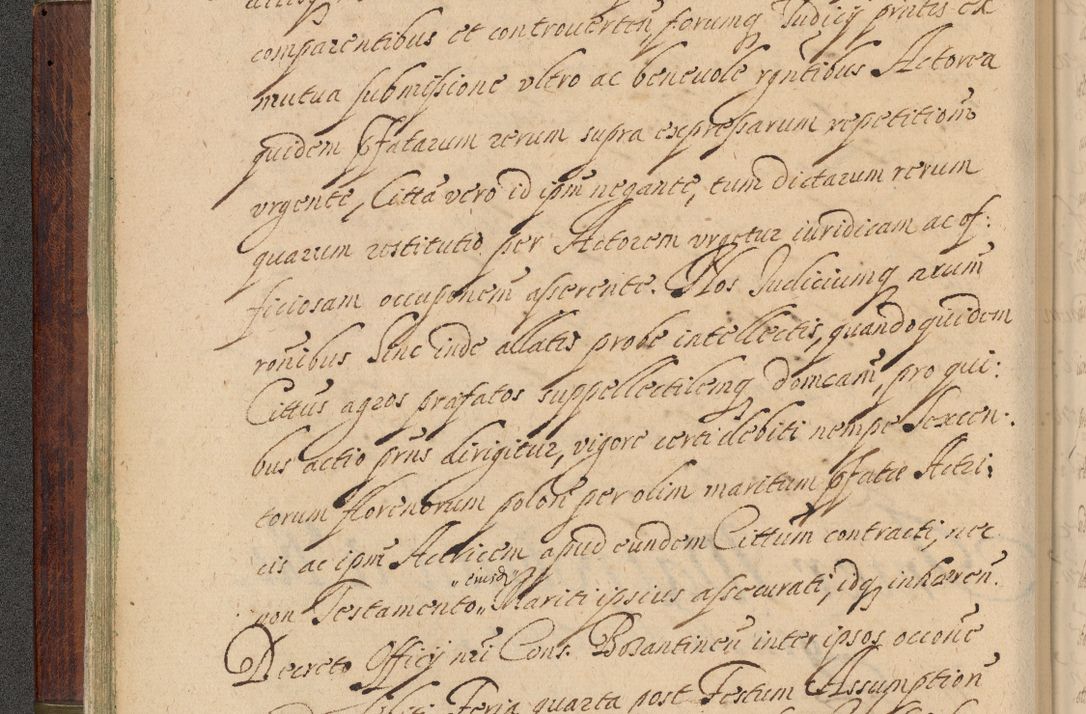 comparentibus et controverten̄ forumq̃ Judicij pn̄tis ex
mutua submissione vltro ac benevole rgn̄tibus Actorea
quidem p̃fatarum rerum supra expressarum repetitionē
vrgente, Citta vero id ipm̄ negante, tum dictarum rerum
quarum restitutio per Actorem vrgetur iuridicam ac of:
ficiosam occuponem̄ asserente. Nos Judiciumq̃ arum
ronibus hinc inde allatis probe intellectis, quandoquidem
Cittus agros præfatos suppellectilemq̃ domcam̄, pro qui:
bus actio prn̄s dirigitur, vigore certi debiti nempe sexcen:
torum florenorum polon̄ per olim maritum p̃fatæ Actri:
cis ac ipm̄ Actricem apud eundem Cittum contracti, nec
non Testamento „eiusdē„ Mariti ipsius assecurati, idq̃ inhæren̄.
Decreto Officij nr̄i Cons. Bozantinen̄ inter ipsos occone
Feria quarta post Festum Assumption̄